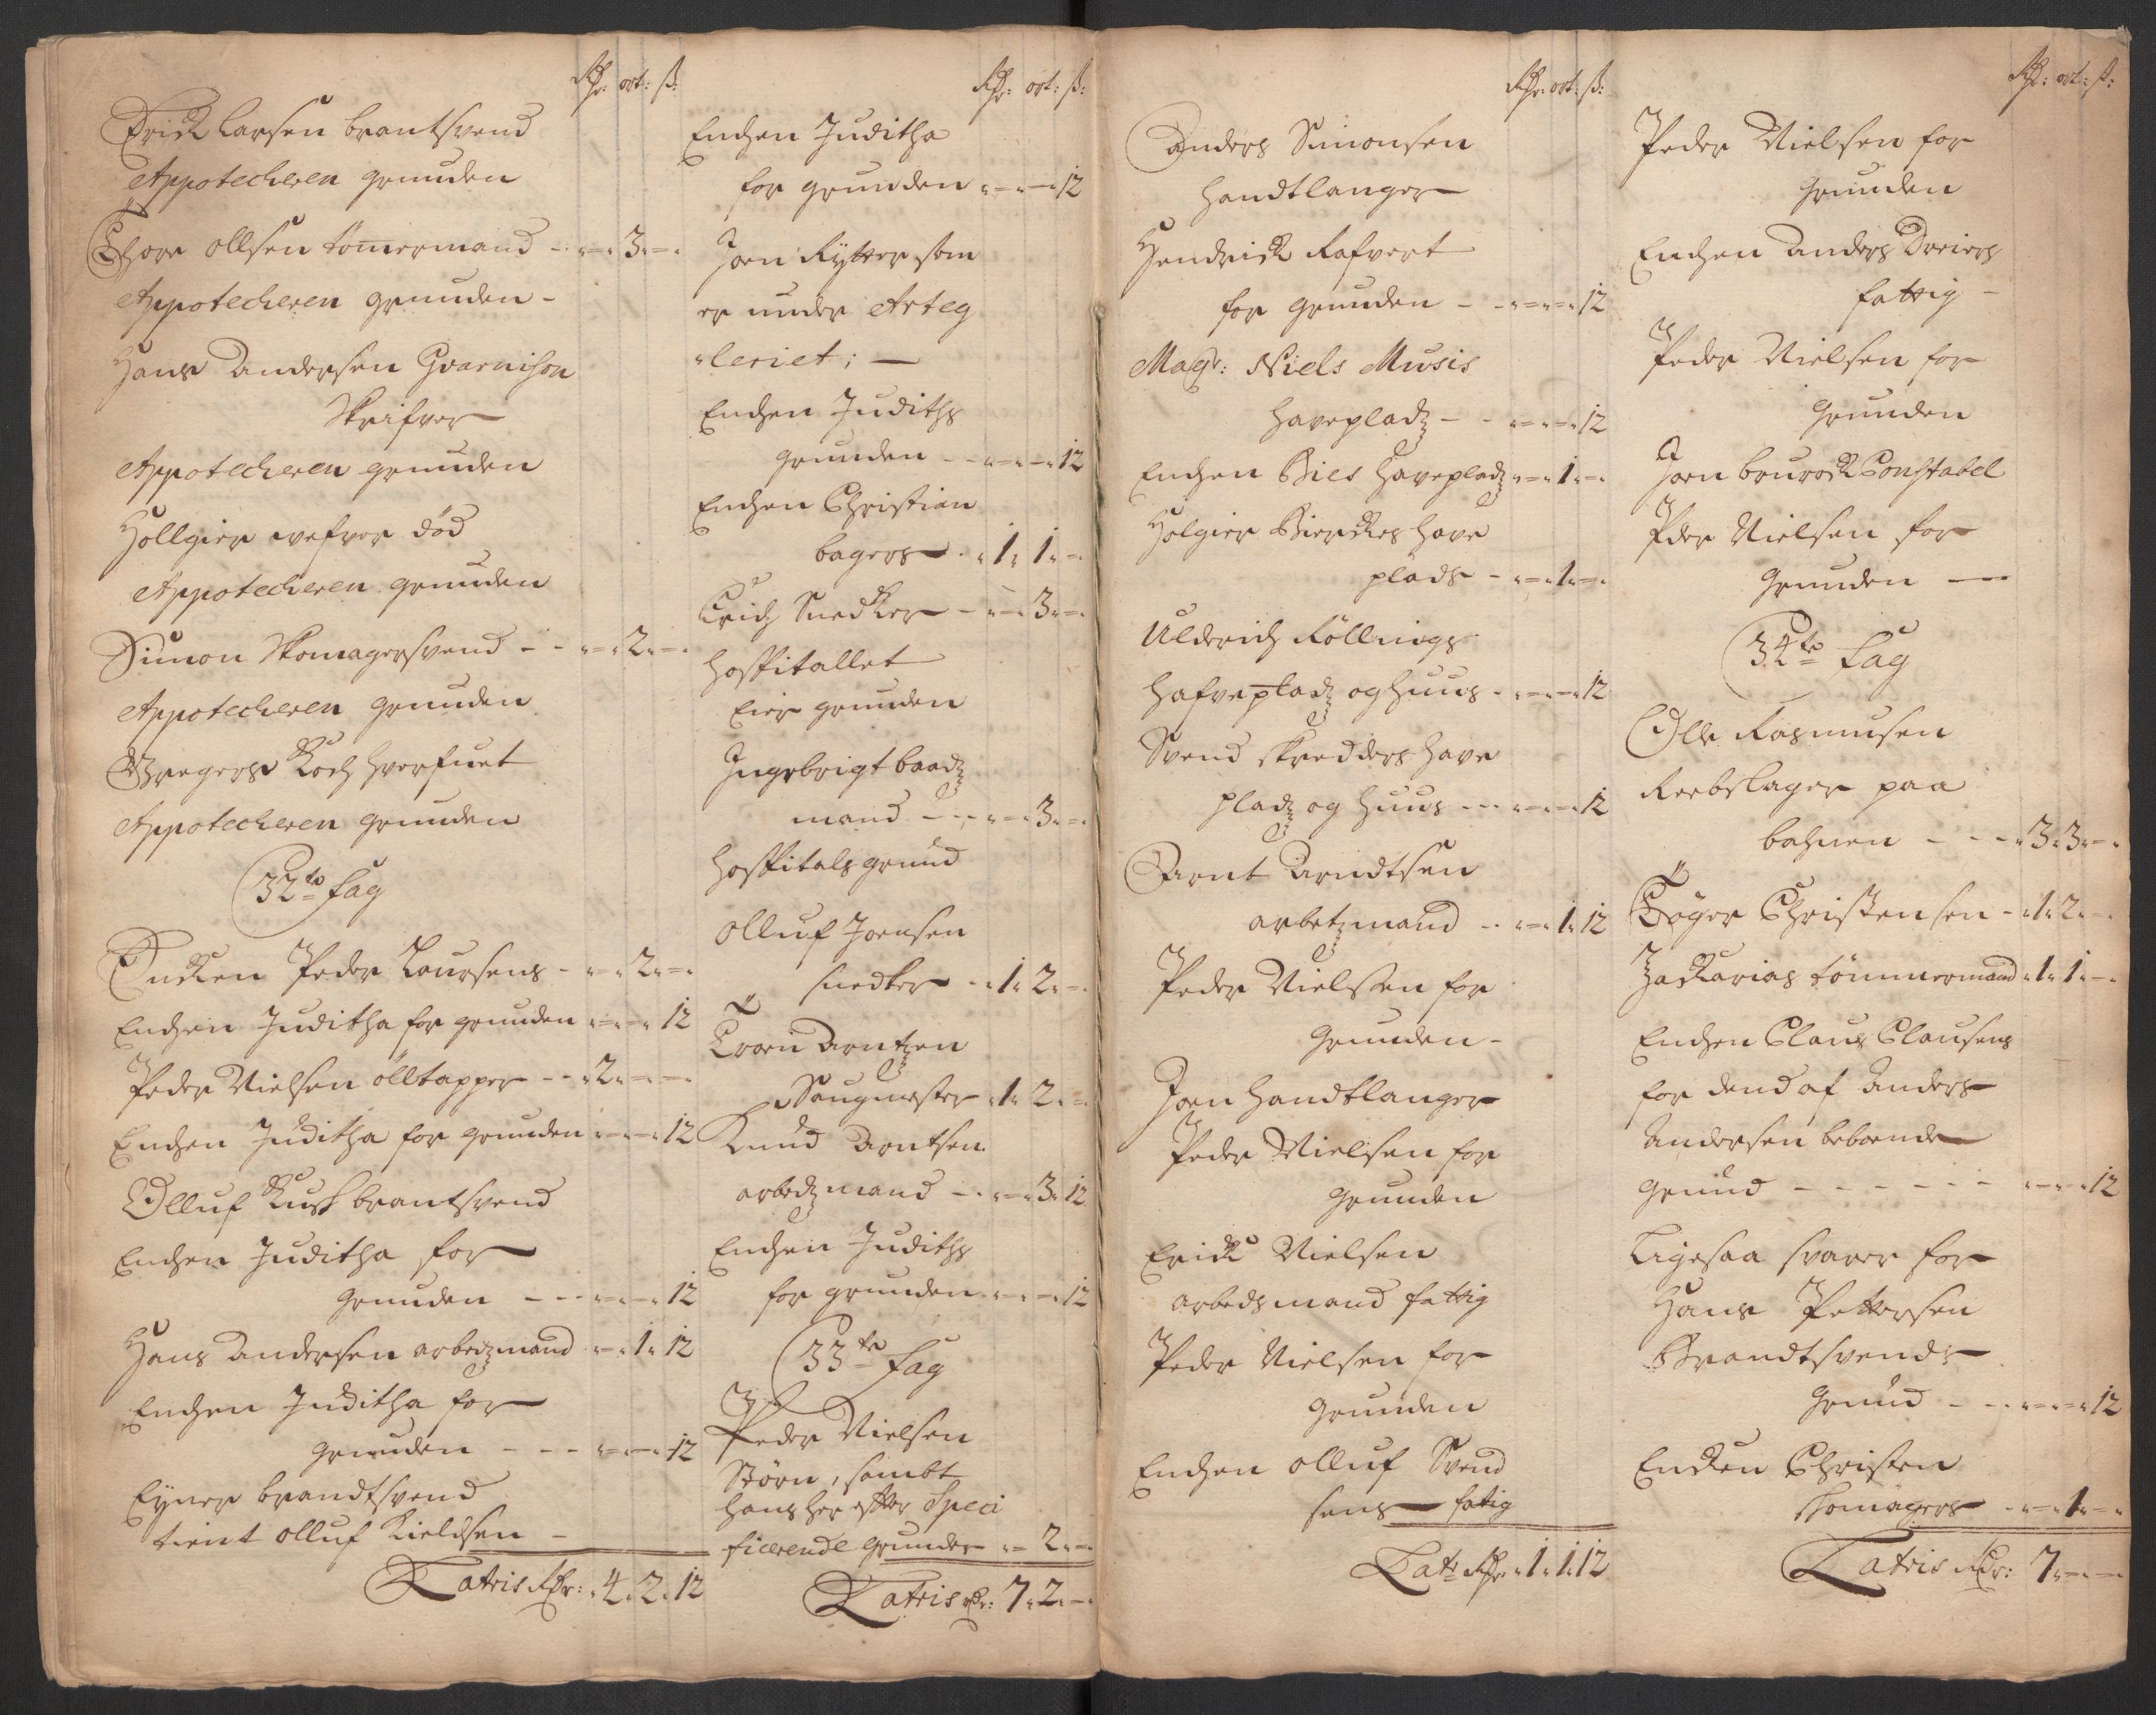 Rdr: ort: ß:
Erick Larsen brantsvend
Appotecheren grunden
Thore Ollsen tömermand - - " = " 3 " = "
Appotecheren grunden -
Hans Andersen Gvarnison
Skrifver
Appotecheren grunden
Hollgier vefver död
Appotecheren grunden
Simon Skomagersvend - - " = " 2 " = "
Appotecheren grunden
Gregers Koch
Appotecheren grunden
32te Lag
Encken Peder Laursens - " = " 2 " = "
Enchen Juditha for grunden " = " = " 12
Peder Nielsen ölltapper - - " 2 " = " = "
Enchen Juditha for grunden " = " = " 12
Olluf Rusk brantsvend
Enchen Juditha for
grunden - - - " = " = " 12
Hans Andersen arbedzmand " = " 1 " 12
Enchen Juditha for
grunden - - - " = " = " 12
Eyner brandtsvend
tient olluf Kieldsen -
Latris Rdr: " 4 " 2 " 12
Rdr: ort: ß:
Enchen Juditha
for grunden " = " = " 12
Joen Rytter som
er under Arteg
"leriet; -
Enchen Judiths
grunden - - " = " = " 12
Enchen Christian
bagers - " 1 " 1 " = "
Erich Snedker - " = " 3 " = "
Hospitallet
Eier grunden
Ingebrigt baadz
mand - - - " = " 3 " = "
Hospitals grund
Olluf Joensen
snedker - " 1 " 2 " = "
Troen Arntzen
Saugmester " 1 " 2 " = "
Knud Arntsen
arbedzmand - - " = " 3 " 12
Enchen Judiths
for grunden " = " = " 12
33te Lag
Peder Nielsen
Störn, sambt
hans her efter Speci
ficerende grunder " = 2 " = "
Latris Rdr: 7 " 2 " = "
Rdr: ort: ß:
Anders Simonsen
Handtlanger
Hendrick Rafvert
for grunden - - " = " = " 12
Magr: Niels Musis
havepladz - - " = " = " 12
Enchen Bies havepladz " = " 1 " = "
Holgier Bierckes have
plads - " = " 1 " = "
Ulderich Röllings
hafvepladz og huus - " = " = " 12
Svend skredders have
pladz og huus - - - " = " = " 12
Arnt Arndtsen
arbetzmand - - " = " 1 " 12
Peder Nielsen for
Grunden -
Joen handtlanger
Peder Nielsen for
grunden
Erick Nielsen
arbedsmand fattig
Peder Nielsen for
Grunden
Enchen olluf Svend
sens fatig
Latz Rdr " 1 " 1 " 12
Rdr: ort: ß:
Peder Nielsen for
grunden
Enchen Anders Dreiers
fattig -
Peder Nielsen for
grunden
Joen Constabel
Peder Nielsen for
Grunden -
34te Lag
Olle Rasmusen
Reebslager paa
bahnen - - - " 3 " 3 " = "
Töger Christensen - " 1 " 2 " = "
Zackarias tömmermand " 1 " 1 " = "
Enchen Claus Clausens
for dend af Anders
Andersen beboende
grund - - - - - - " = " = " 12
Ligesaa svarer for
Hans Pettersen
Brandtsvends
Grund - - - " = " = " 12
Encken Christen
skomagers - - " = " 1 " = "
Latris Rdr: 7 " = " = "